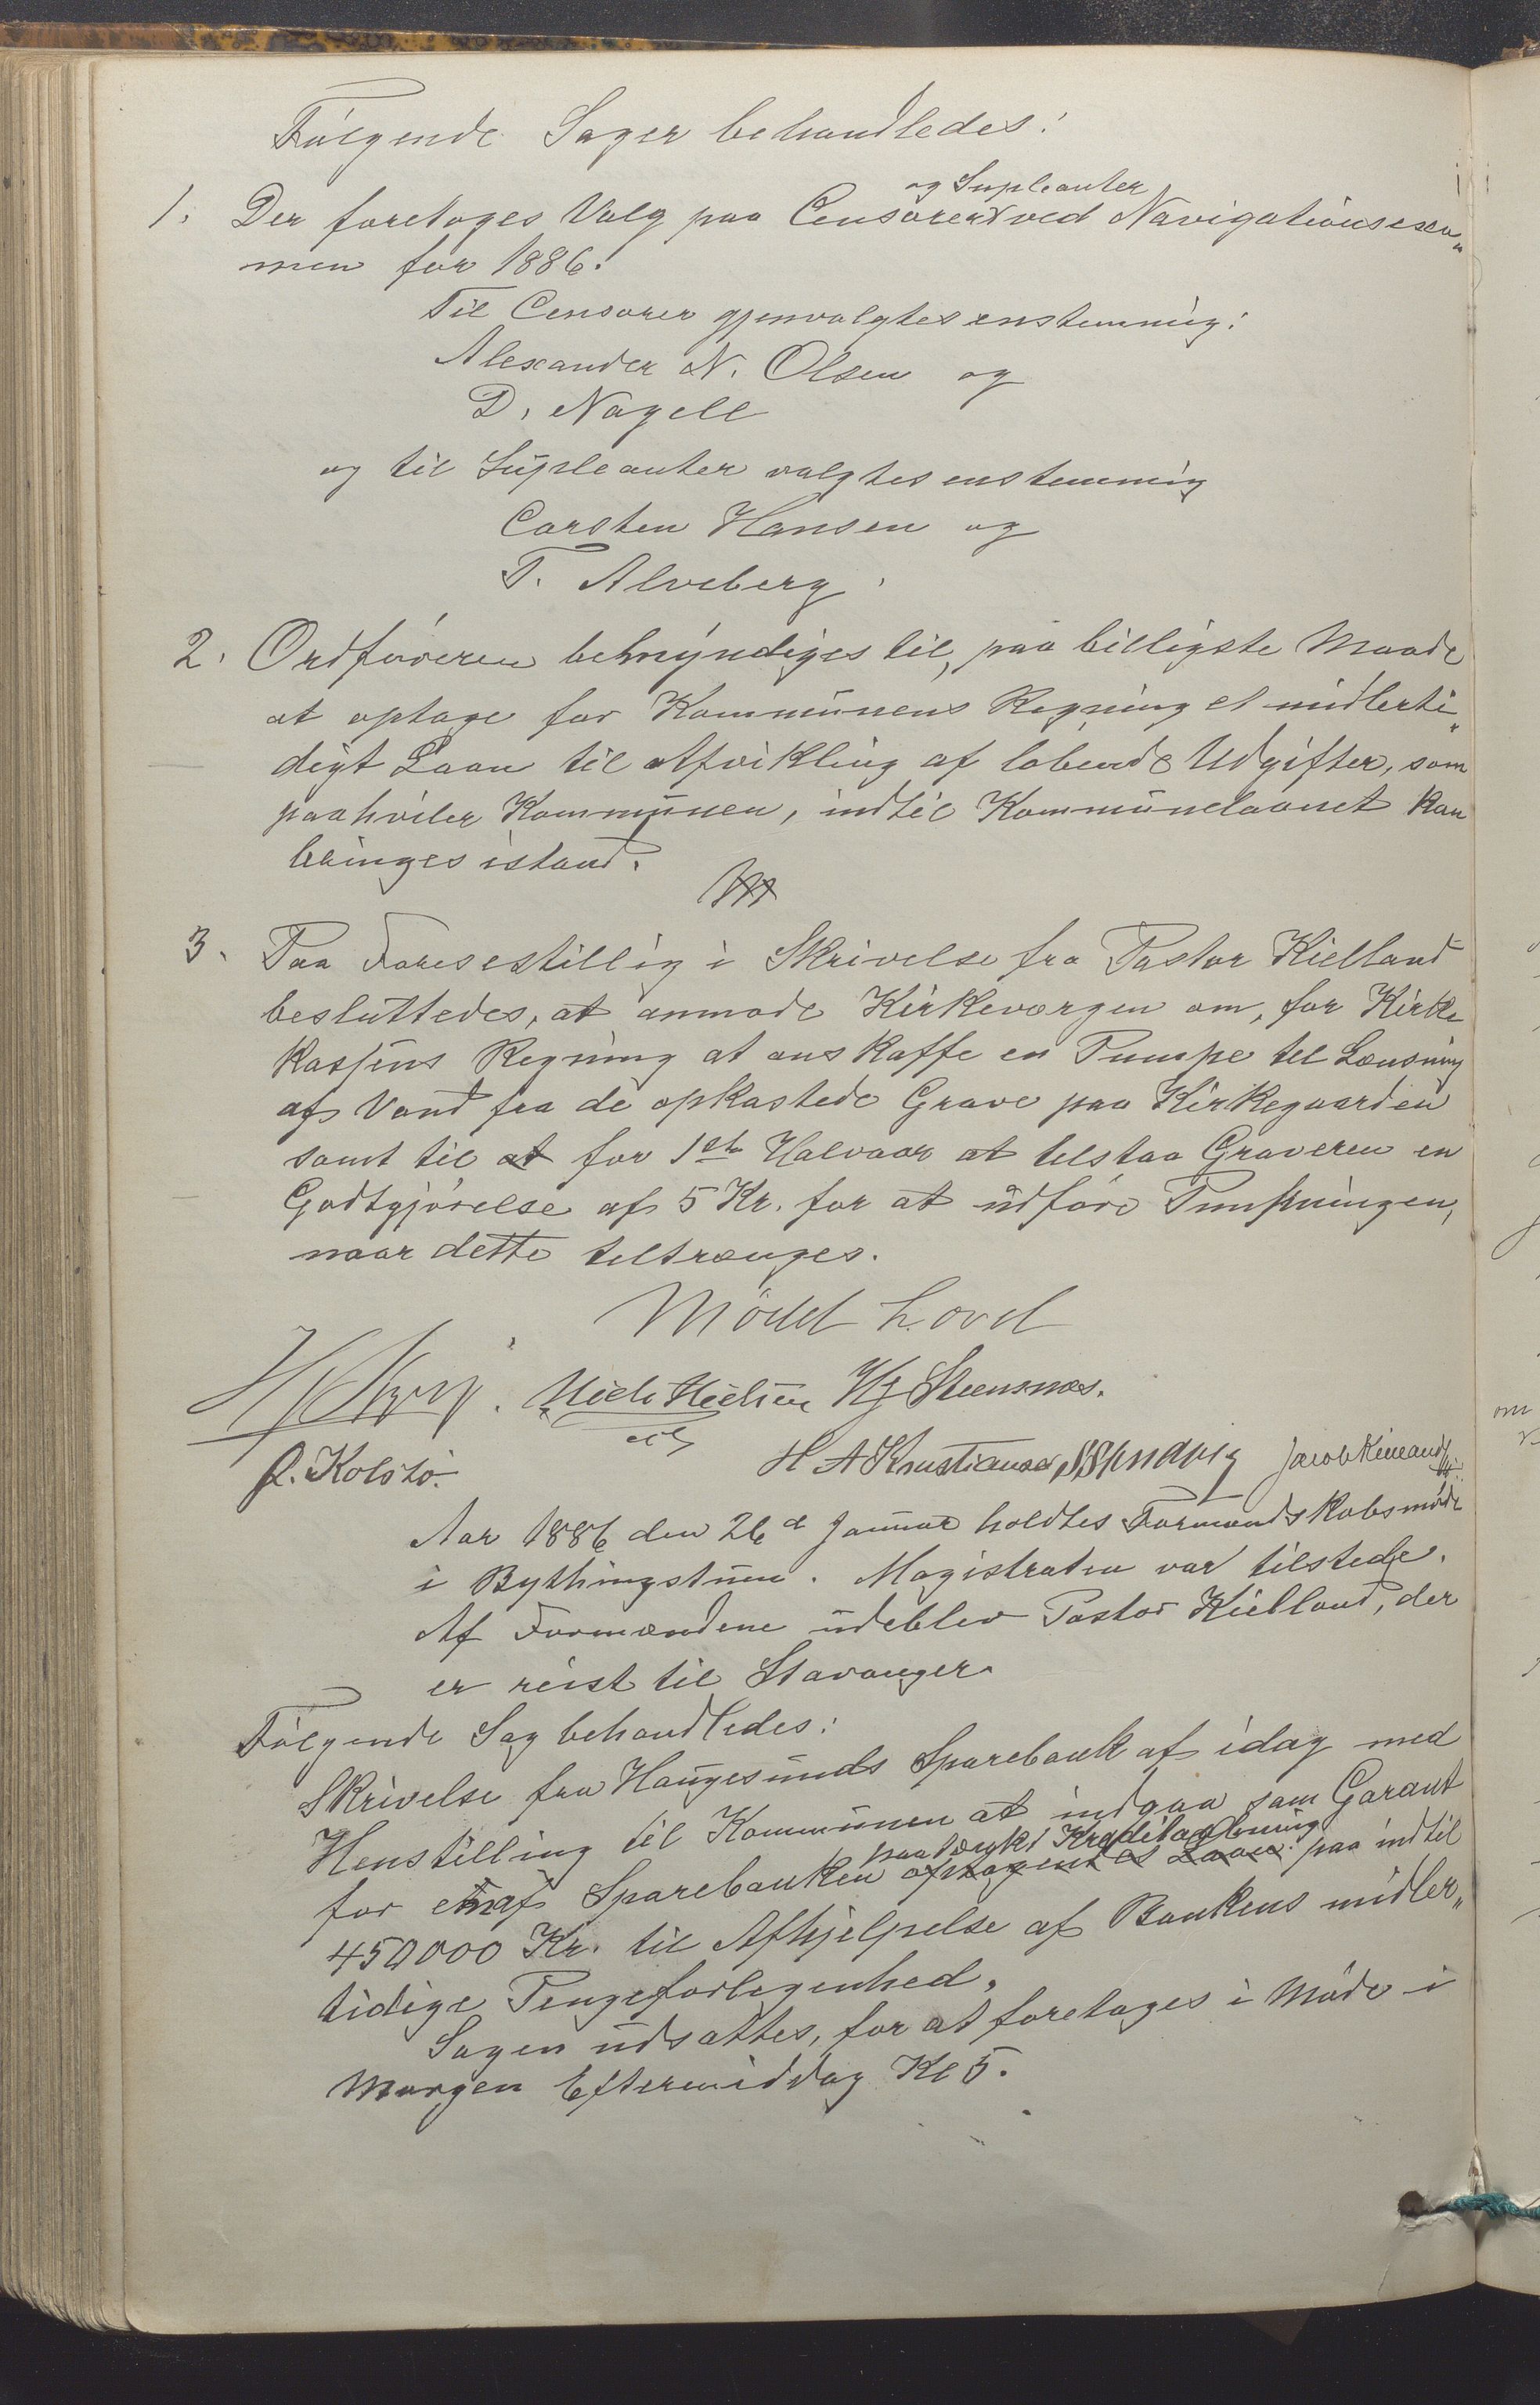 Følgende Sager behandledes:
og Supleanter
1. Der foretoges Valg paa Censorer ved Navigationsexa„
men for 1886.
Til Censorer gjenvalgtes enstemmig:
Alexander N. Olsen og
D. Nagell
og til Supleanter valgtes enstemmig
Carsten Hansen og
T. Alveberg.
2. Ordføreren bemyndiges til, paa billigste Maade
at optage for Kommunens Regning et midlerti„
digt Laan til Afvikling af løbende Udgifter, som
paahviler Kommunen, indtil Kommunelaanet kan
bringes istand.
3. Paa Foresestillig i Skrivelse fra Pastor Kielland
besluttedes, at anmode Kirkeværgen om, for Kirke
kassens Regning at anskaffe en Pumpe til Lænsning
af Vand fra de opkastede Grave paa Kirkegaarden
samt til at for 1ste Halvaar at tilstaa Graveren en
Godtgjørelse af 5 Kr. for at udføre Pumpningen,
naar dette tiltrænges.
Mødet hævet
Niels Nielsen HJ Steensnæs.
Q. Kolstø. H A Kristiansen Jacob Kielland
Aar 1886 den 26d Januar holdtes Formandskabsmøde
i Bythingstuen. Magistraten var tilstede.
Af Formændene udeblev Pastor Kielland, der
er reist til Stavanger.
Følgende Sag behandledes:
Skrivelse fra Haugesunds Sparebank af idag med
Henstilling til Kommunen at indgaa som Garant
paatænkt Kreditaabning
for en af Sparebanken optagendes Laan paa indtil
450000 Kr. til Afhjelpelse af Bankens midler„
tidige Pengeforlegenhed.
Sagen udsattes, for at foretages i Møde i
Morgen Eftermiddag Kl 5.